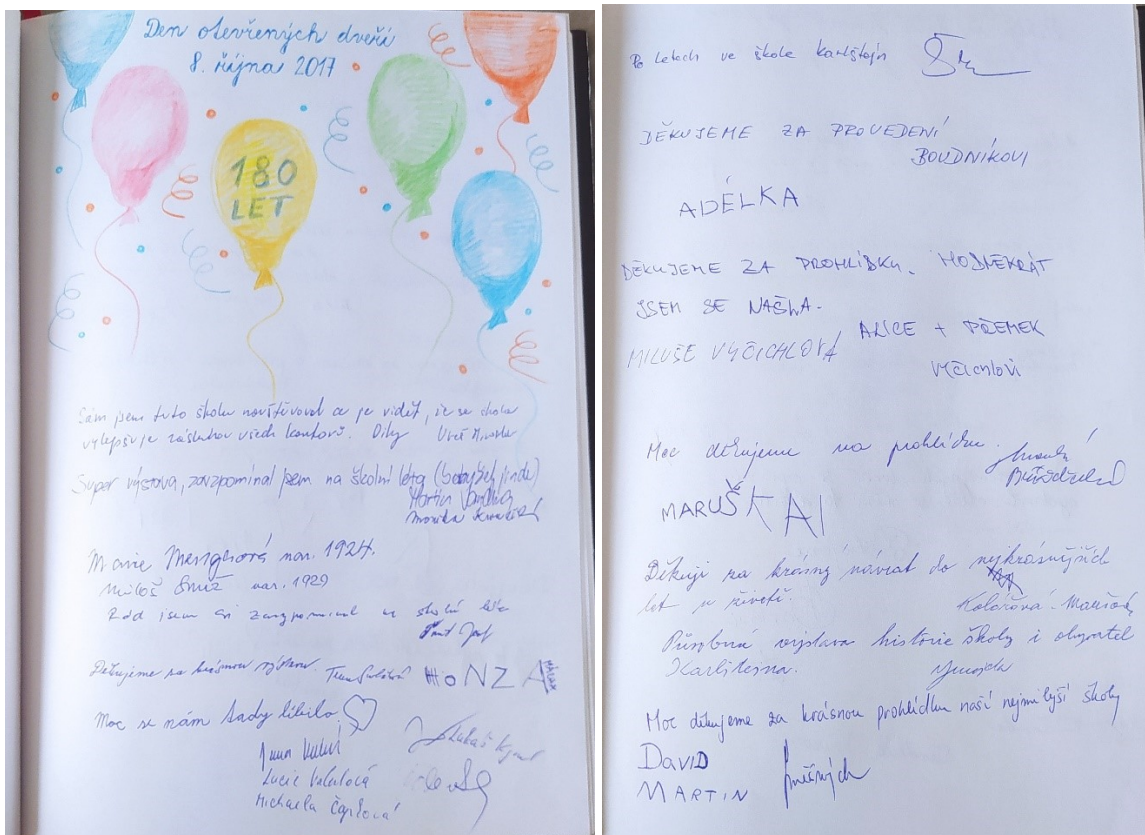 Den otevřených dveří
8. října 2017
180
LET
Sám jsem tuto školu navštěvoval a je vidět, že se škola
vylepšuje zásluhou všech kantorů. Díky
Super výstava, zavzpomínal jsem na školní léta
Martin
Monika
Marie nar. 1924.
Miloš nar. 1929
Rád jsem si zavzpomínal na školní léta
Děkujeme za krásnou výstavu. HONZA
Moc se nám tady líbilo
Jana
Lucie
Michaela
Lukáš
Po letech ve škole Karlštejn
DĚKUJEME ZA PROVEDENÍ
BOUDNÍKOVI
ADÉLKA
DĚKUJEME ZA PROHLÍDKU. MODNĚKRÁT
JSEM SE NAŠLA.
ALICE + PŘEMEK
MILUŠE VYČICHLOVÁ
VYČICHLOVI
Moc děkujeme za prohlídku.
MARUŠKA
Děkuji za krásný návrat do nejkrásnějších
let v životě.
Kolářová
Působivá výstava historie školy i obyvatel
Karlštejna.
Moc děkujeme za krásnou prohlídku naší nejmilejší školy
DAVID
MARTIN